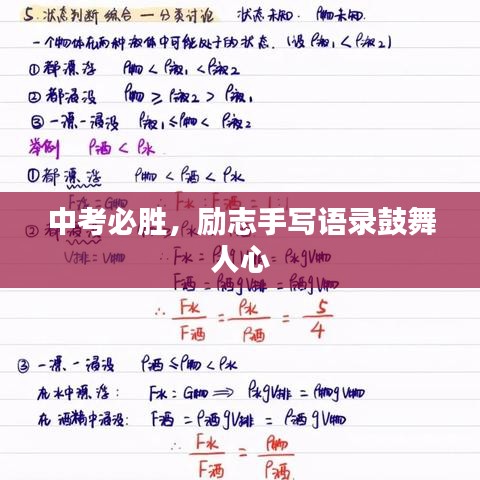 5.状态判断 综合 — 分类讨论 状态未知. ρ物未知.
一个物体在两种液体中可能处于的状态. (设 ρ液₁ < ρ液₂)
①都漂浮 ρ物 < ρ液₁ < ρ液₂
②都浸没 ρ物 ≥ ρ液₂ > ρ液₁
③一漂一浸没 ρ液₁ ≤ ρ物 < ρ液₂
举例 ρ酒 < ρ水
①都漂浮 ρ物 < ρ酒 < ρ水
中考必胜，励志手写语录鼓舞
人心
F酒 = ρ酒gV排 = ρ酒gV物
∴ F水/F酒 = ρ水/ρ酒 = 5/4
③一漂.一浸没 ρ酒 ≤ ρ物 < ρ水
在水中漂浮: F水 = G物 ⟹ ρ水gV排 = ρ物gV物
在酒精中浸没: F酒 = ρ酒gV排 = ρ酒gV物
∴ F水/F酒 = ρ物/ρ酒